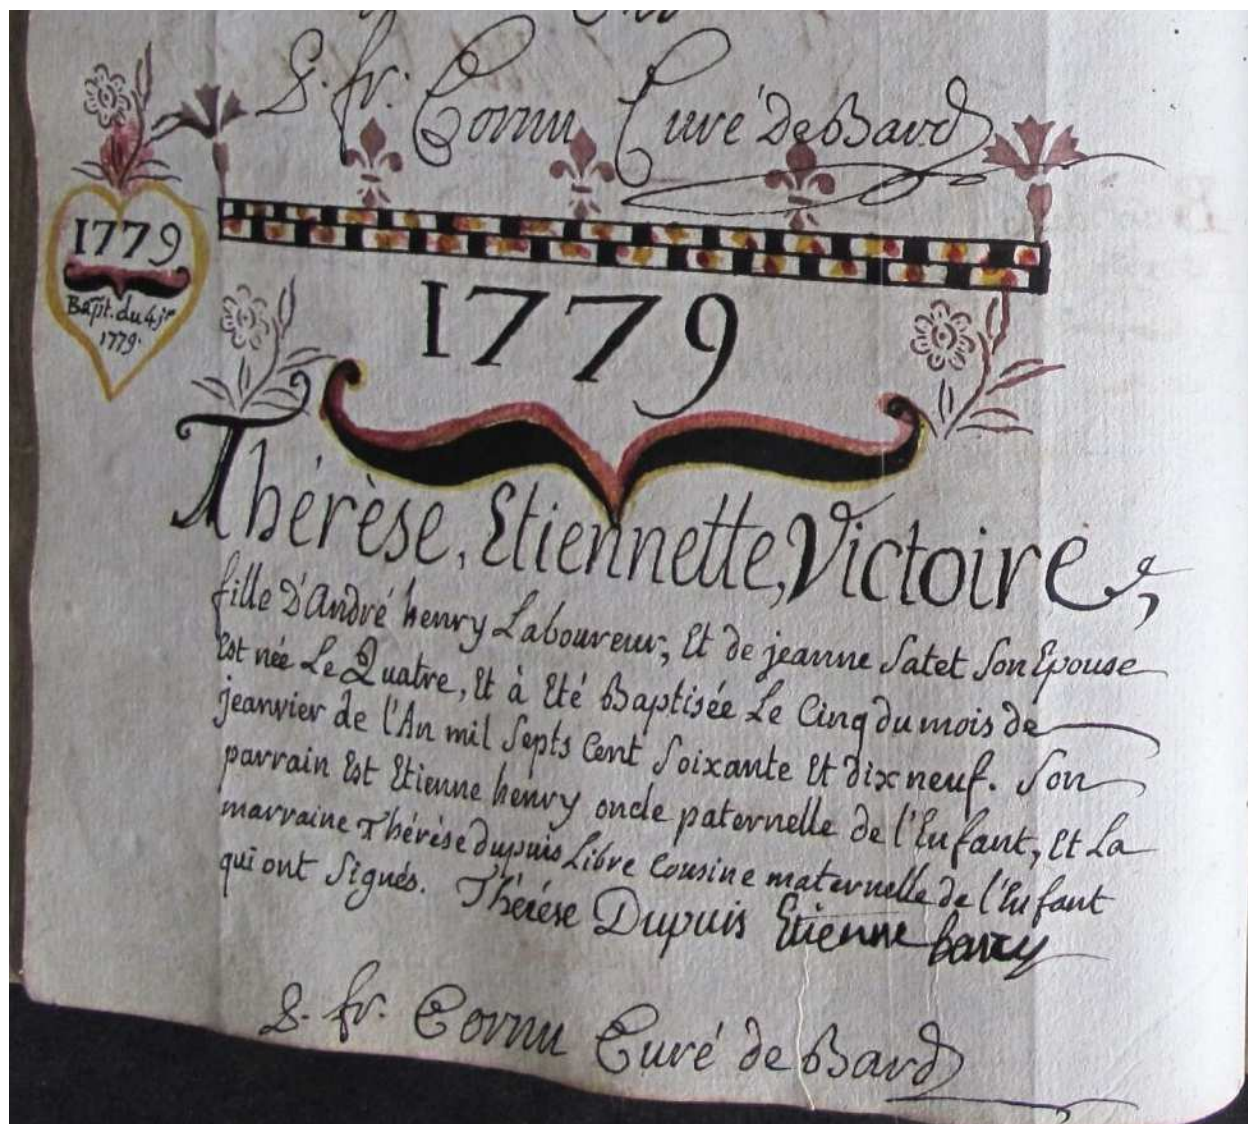 S. fr. Cornu Curé de Bard
1779
Bapt. du 4 jr
1779.
1779
Thérèse, Etiennette, Victoire,
fille d'André henry Laboureur, Et de jeanne Satet Son Epouse
Est née Le Quatre, Et à Eté Baptisée Le Cinq du mois de
jeanvier de l'An mil Septs Cent Soixante Et dix neuf. Son
parrain Est Etienne henry oncle paternelle de l'Enfant, Et La
marraine Thérèse dupuis Libre Cousine maternelle de l'Enfant
qui ont Signés. Thérése Dupuis Etienne henry
S. fr. Cornu Curé de Bard